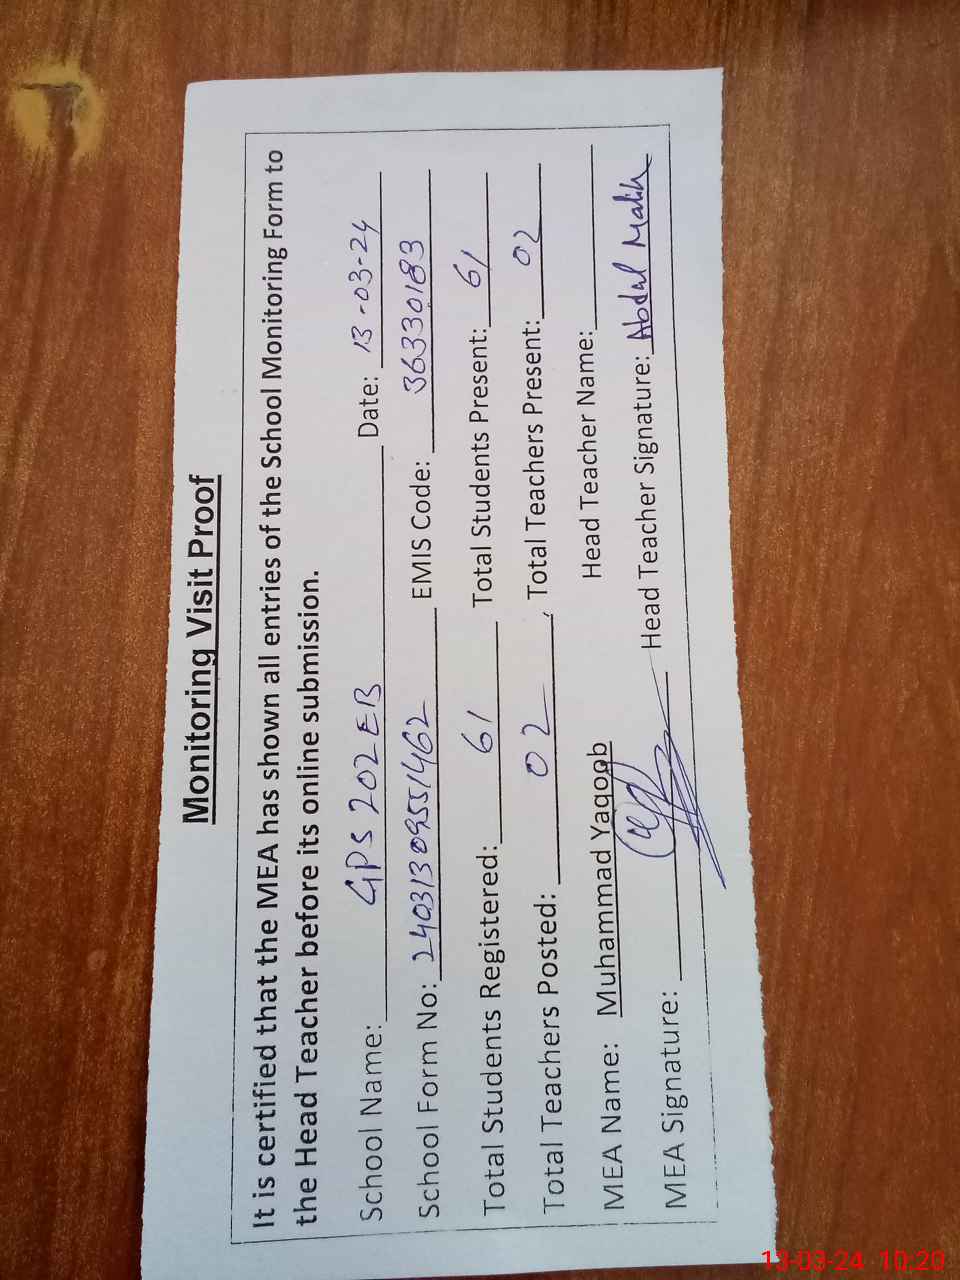 Monitoring Visit Proof
It is certified that the MEA has shown all entries of the School Monitoring Form to
the Head Teacher before its online submission.
School Name: GPS 202 EB Date: 13-03-24
School Form No: 24031309551462 EMIS Code: 36330183
Total Students Registered: 61 Total Students Present: 61
Total Teachers Posted: 02, Total Teachers Present: 02
MEA Name: Muhammad Yaqoob Head Teacher Name:
MEA Signature: Head Teacher Signature: Abdul Malik
13-03-24 10:20